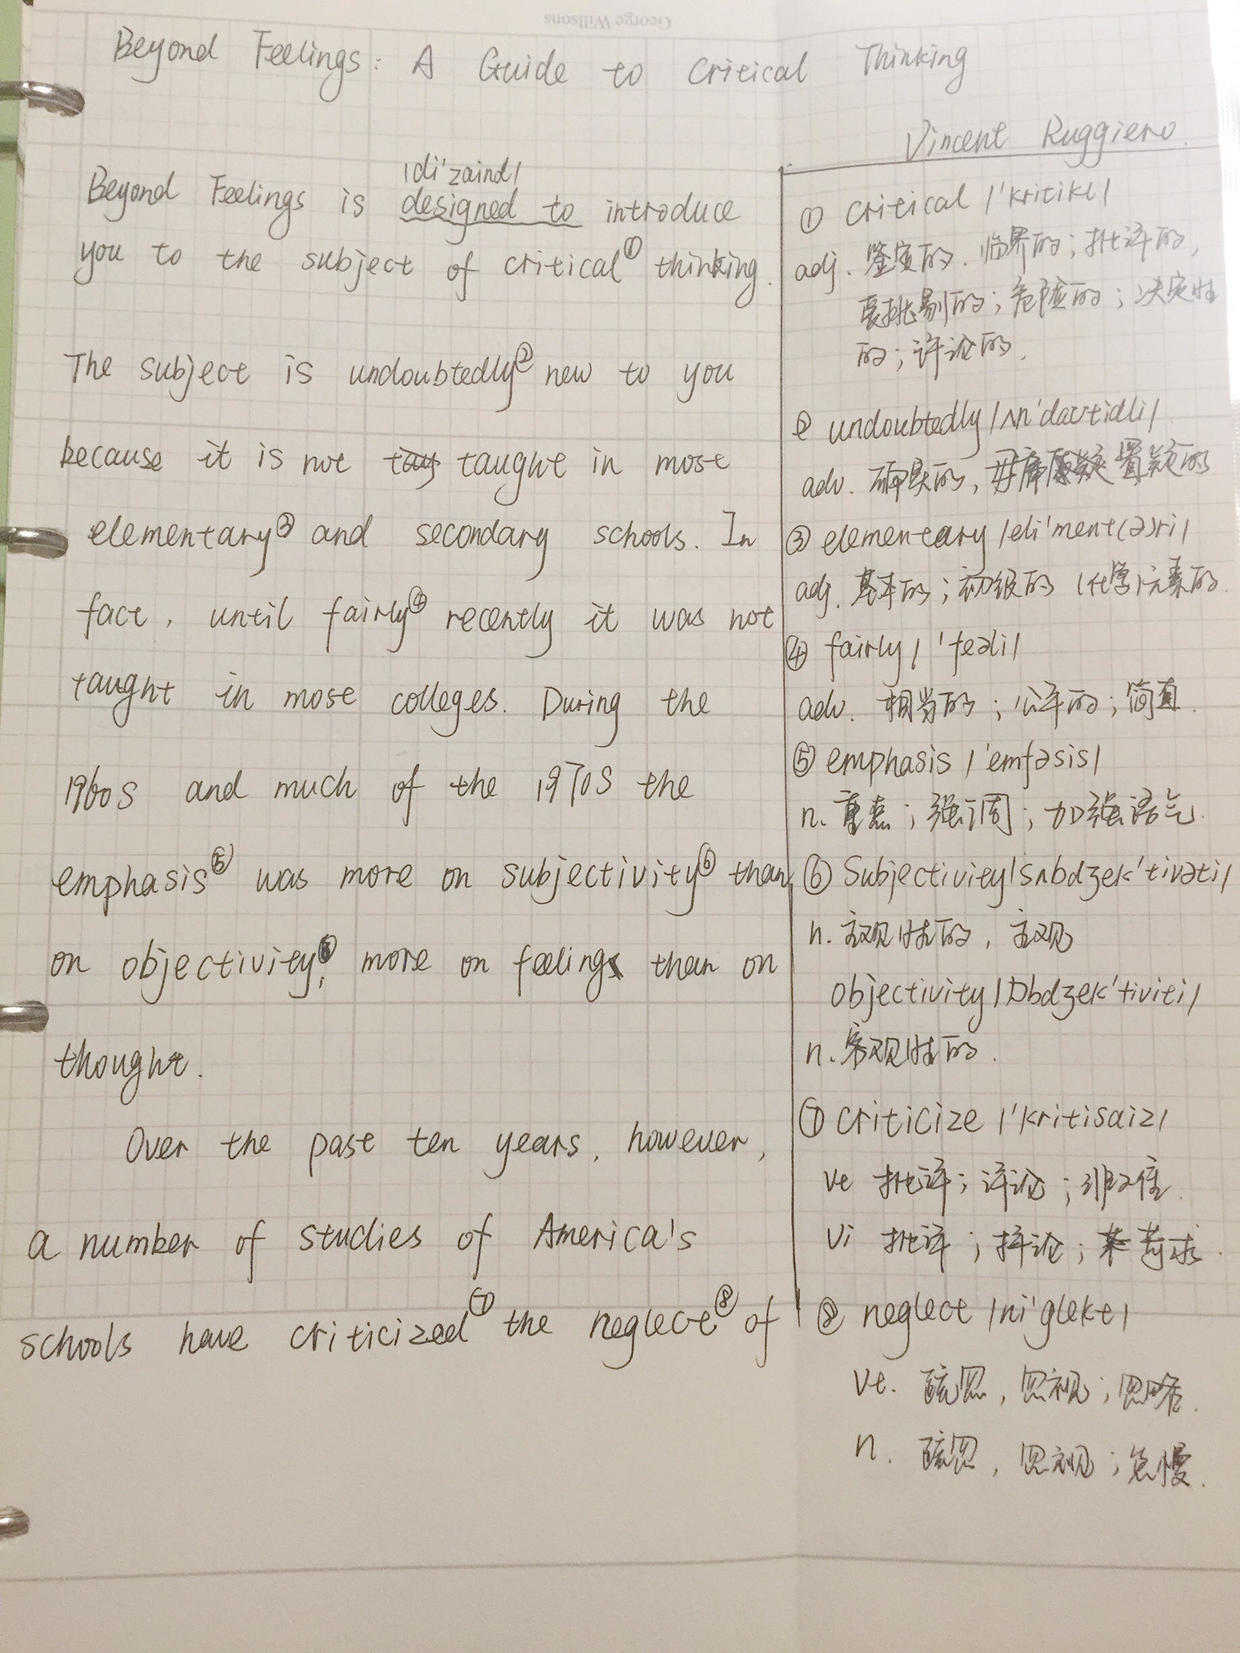 George Willsons
Beyond Feelings: A Guide to Critical Thinking
Vincent Ruggiero
/di'zaind/
Beyond Feelings is designed to introduce
you to the subject of critical① thinking.
The subject is undoubtedly② new to you
because it is not taught in most
elementary③ and secondary schools. In
fact, until fairly④ recently it was not
taught in most colleges. During the
1960s and much of the 1970s the
emphasis⑤ was more on subjectivity⑥ than
on objectivity⑥; more on feeling than on
thought.
Over the past ten years, however,
a number of studies of America's
schools have criticized⑦ the neglect⑧ of
① critical /'kritikl/
adj. 鉴定的. 临界的; 批评的,
爱挑剔的; 危险的; 决定性
的; 评论的.
② undoubtedly /ʌn'daʊtidli/
adv. 确实的, 毋庸置疑的
③ elementary /eli'ment(ə)ri/
adj. 基本的; 初级的 (化学)元素的
④ fairly /'feəli/
adv. 相当的; 公平的; 简直.
⑤ emphasis /'emfəsis/
n. 重点; 强调; 加强语气
⑥ Subjectivity /sʌbdʒek'tivəti/
n. 主观性的, 主观
objectivity /ɒbdʒek'tiviti/
n. 客观性的.
⑦ criticize /'kritisaiz/
vt 批评; 评论; 非难.
vi 批评; 评论; 苛求.
⑧ neglect /ni'glekt/
vt. 疏忽, 忽视; 忽略.
n. 疏忽, 忽视; 怠慢.